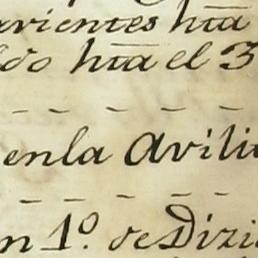 rvientes hta
do hta el 3
enla Avili
n 1º. de Dizi